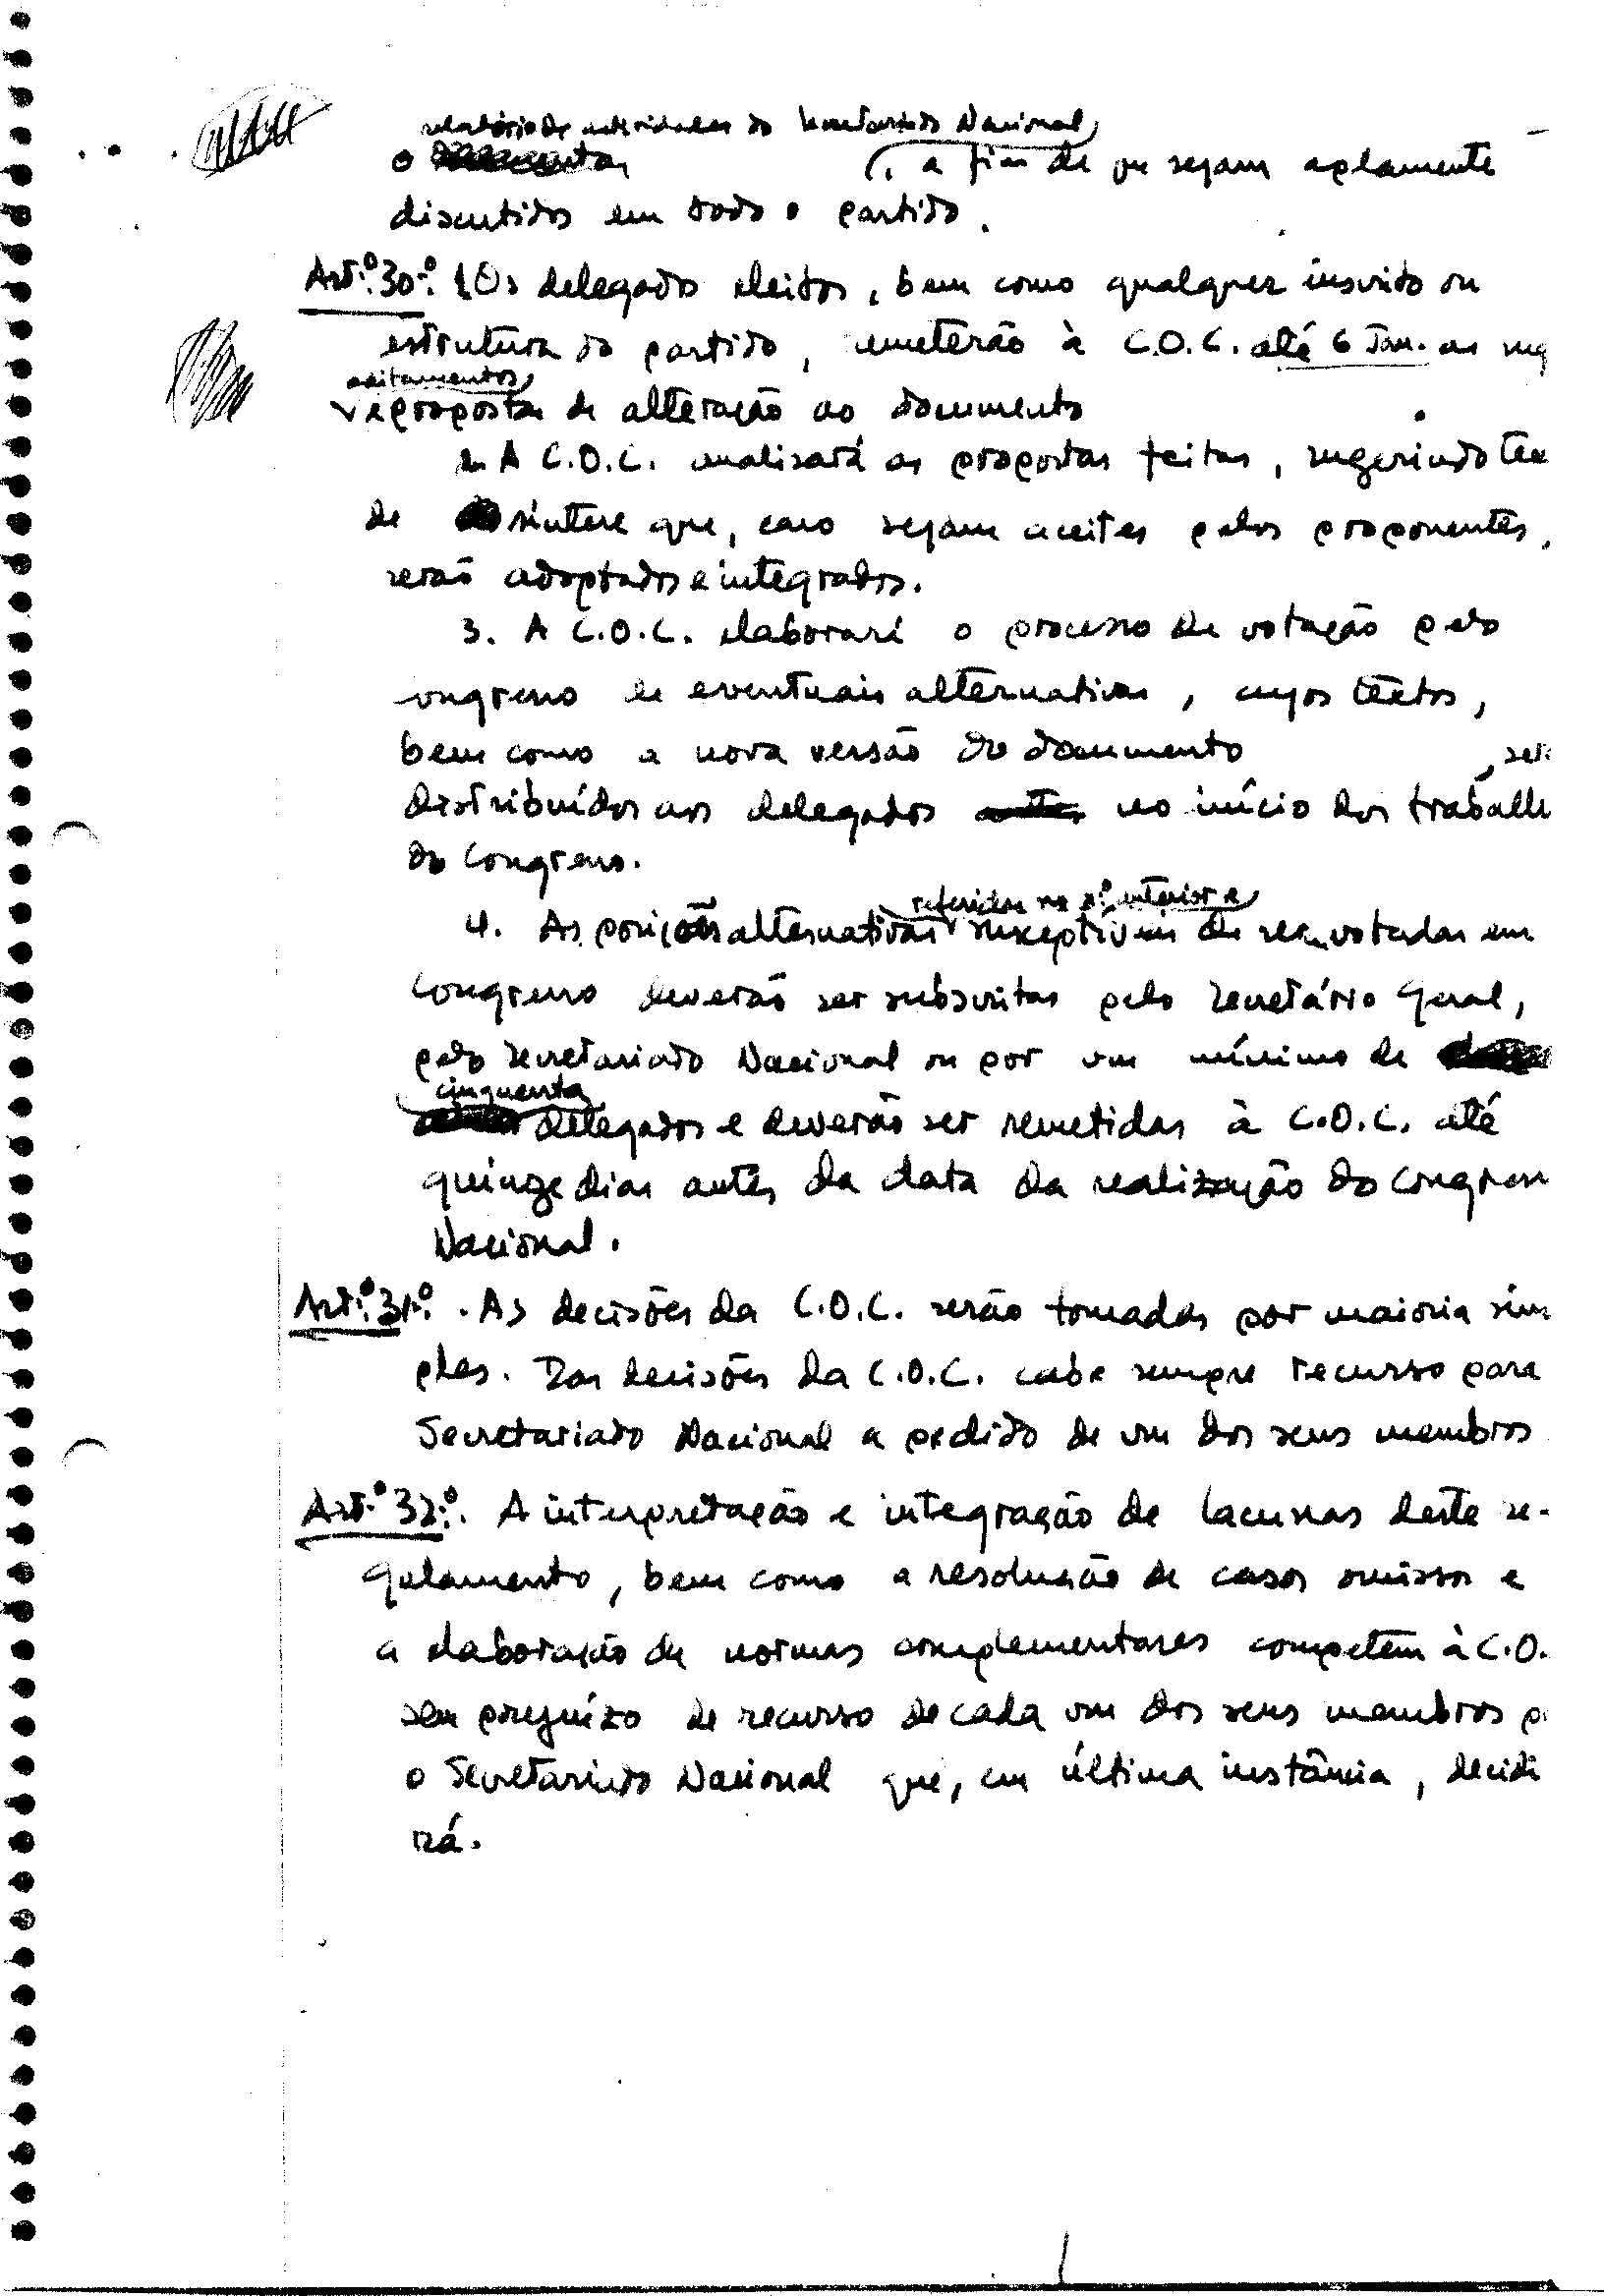 relatório de actividades do Secretariado Nacional
o , a fim de que sejam aplamente
discutidos em todo o partido.
Artº.30º. 1. Os delegados eleitos, bem como qualquer inscrito ou
estrutura do partido, remeterão à C.O.C. até 6 Jan. as sug
aditamentos
e propostas de alteração ao documento
2. A C.O.C. analisará as propostas feitas, sugerindo tex
de síntese que, caso sejam aceites pelos proponentes,
serão adoptados e integrados.
3. A C.O.C. elaborará o processo de votação pelo
congresso de eventuais alternativas, cujos textos,
bem como a nova versão do documento , ser
distribuídos aos delegados no início dos trabalh
do Congresso.
referidas no nº. anterior e
4. As posições alternativas susceptíveis de ser votadas em
Congresso deverão ser subscritas pelo Secretário Geral,
pelo Secretariado Nacional ou por um mínimo de
cinquenta
delegados e deverão ser remetidas à C.O.C. até
quinze dias antes da data da realização do Congress
Nacional.
Artº.31º. . As decisões da C.O.C. serão tomadas por maioria sim
ples. Das decisões da C.O.C. cabe sempre recurso para
Secretariado Nacional a pedido de um dos seus membros
Artº.32º. A interpretação e integração de lacunas deste re-
gulamento, bem como a resolução de casos omissos e
a elaboração de normas complementares competem à C.O.
sem prejuízo de recurso de cada um dos seus membros p
o Secretariado Nacional que, em última instância, decidi
rá.